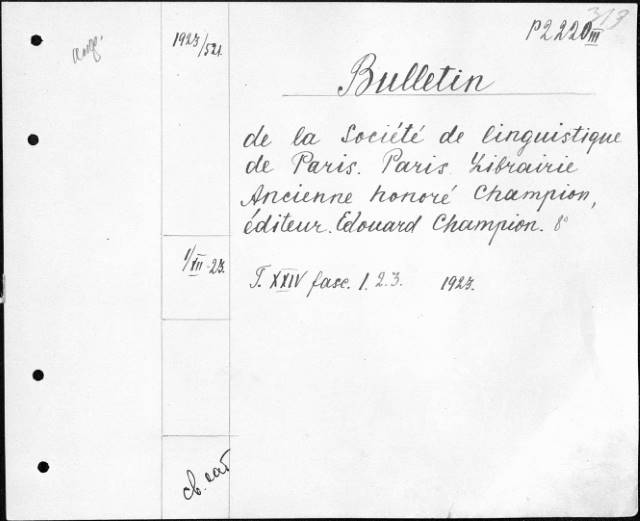 313
P2220III
1923/521.
Bulletin
de la Société de linguistique
de Paris. Paris Librairie
Ancienne honoré Champion,
éditeur. Edouard Champion. 8°
1/XII 23.
T. XXIV fasc. 1. 2. 3. 1923.
св. кат